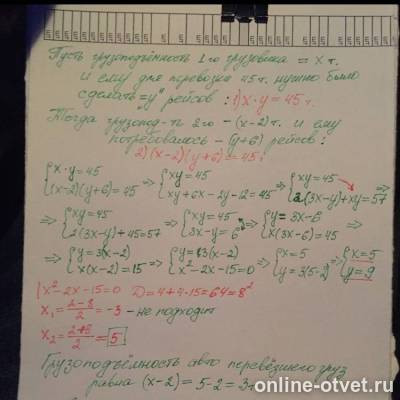 Пусть грузоподъёмность 1го грузовика = х т.
и ему для перевозки 45 т. нужно было
сделать "y" рейсов : 1) x · y = 45 т.
Тогда грузопод-ть 2го - (x-2) т. и ему
потребовалось - (y+6) рейсов :
2) (x-2)(y+6) = 45
{x·y = 45 (x-2)(y+6) = 45 => {xy = 45 xy+6x-2y-12 = 45 => {xy = 45 2(3x-y)+xy = 57 =>
=> {xy = 45 2(3x-y)+45 = 57 => {xy = 45 3x-y = 6 => {y = 3x-6 x(3x-6) = 45 =>
=> {y = 3(x-2) x(x-2) = 15 => {y = 3(x-2) x²-2x-15 = 0 => {x = 5 y = 3(5-2) => {x = 5 y = 9
x²-2x-15 = 0 D = 4+4·15 = 64 = 8²
x₁ = (2-8)/2 = -3 - не подходит
x₂ = (2+8)/2 = 5
Грузоподъёмность авто перевёзшего груз
равна (x-2) = 5-2 = 3
online-otvet.ru